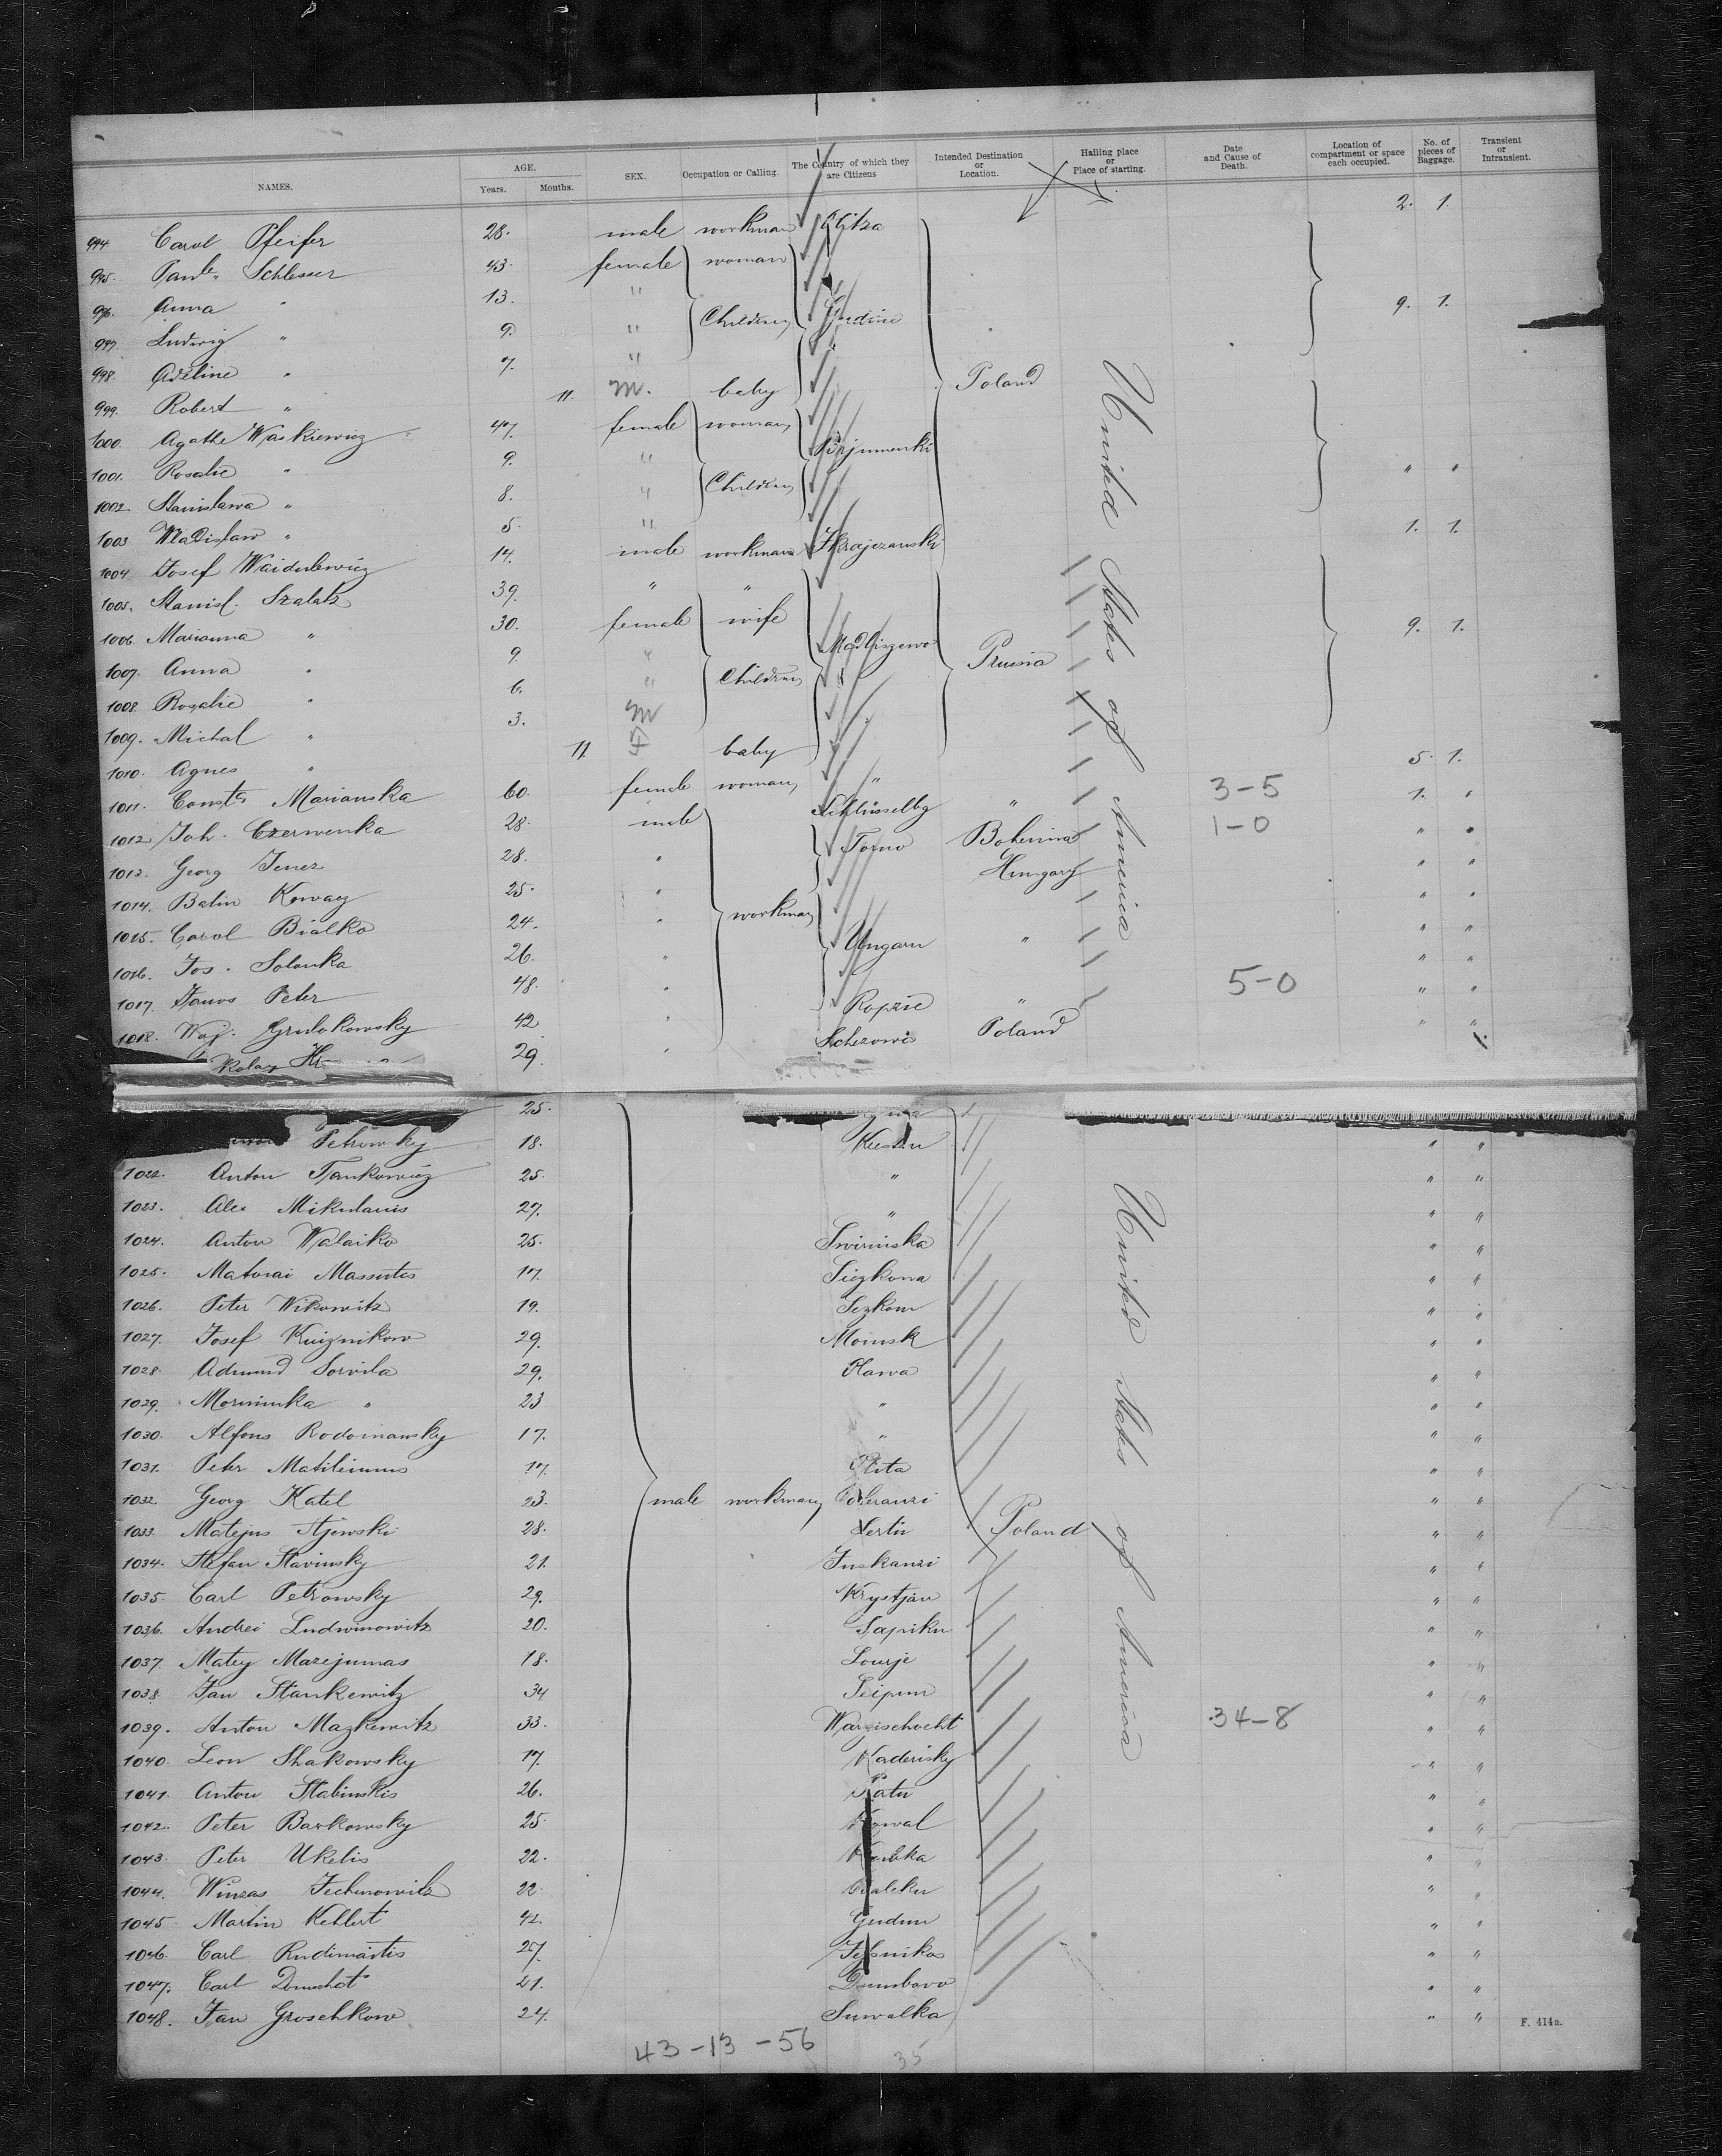 NAMES. AGE. Years. Months. SEX. Occupation or Calling. The Country of which they are Citizens Intended Destination or Location. Halling place or Place of starting. Date and Cause of Death. Location of compartment or space each occupied. No. of pieces of Baggage. Transient or Intransient.
994. Carol Pfeifer 28. male workman 2. 1.
995. Paul. Schlesser 43. female woman
996. Anna " 13. "
997. Ludwig " 9. " Children 9. 1.
998. Adeline " 7. "
999. Robert " 11. m. baby Poland
1000. Agathe Waskiewicz 47. female woman
1001. Rosalie " 9. " " "
1002. Stanislawa " 8. " Children
1003. Wladislaw " 5. " 1. 1.
1004. Josef 14. male workman
1005. Stanisl. Szalatz 39. " "
1006. Marianna " 30. female wife 9. 1.
1007. Anna " 9. " Prussia
1008. Rosalie " 6. " Children
1009. Michal " 3. m
1010. Agnes " 11 f baby 5. 1.
1011. Const. Marianska 60. female woman " 3-5 1. "
1012. Joh. Czerwenka 28. male Schlüsselbg " 1-0 " "
1013. Georg Jenez 28. " Torno Bohemia " "
1014. Balin Kowacz 25. " Hungary " "
1015. Carol Bialko 24. " workman " "
1016. Jos. Solanka 26. " Ungarn " " "
1017. Janos Peter 48. " 5-0 " "
1018. Woj. Grulokowsky 42 " Ropzie " " "
Kolaz 29. " Poland
United States of America
25.
Petrowsky 18. " "
1022. Anton Jankowicz 25. " " "
1023. Alex Mikulanis 27. " " "
1024. Anton Walaiko 25. Swirinska " "
1025. Matwai Massutes 17. Siezkona " "
1026. Peter Wikowitz 19. Sezkom " "
1027. Josef Kuiznikow 29. Moinsk " "
1028. Admund Sorvila 29. Plawa " "
1029. Morminka " 23 " " "
1030. Alfons Rodomansky 17. " " "
1031. Peter Matileinnus 17. Plita " "
1032. Georg Katel 23. male workman " "
1033. Matejus Stjewski 28. Poland " "
1034. Stefan Slavinsky 21. Juskanzi " "
1035. Carl Petrowsky 29. Krystjan " "
1036. Andrei Ludwinowitz 20. Sapiku " "
1037. Matey Mazejumas 18. Lourje " "
1038. Jan Stankewitz 34 Seipun " "
1039. Anton Mazkewitz 33. Warzischocht 34-8 " "
1040. Leon Shakowsky 17. Kaderisky " "
1041. Anton Stabinskis 26. Patu " "
1042. Peter Barkowsky 25. Kowal " "
1043. Peter Ukelis 22. " "
1044. Winzas Jechnowitz 22 " "
1045. Martin Kehlert 42. Gudun " "
1046. Carl Rudimaitis 27. " "
1047. Carl Domschat 21. Dumbovo " "
1048. Jan Groschkow 24. Suwalka " "
United States of America
F. 414a.
43-13-56 35